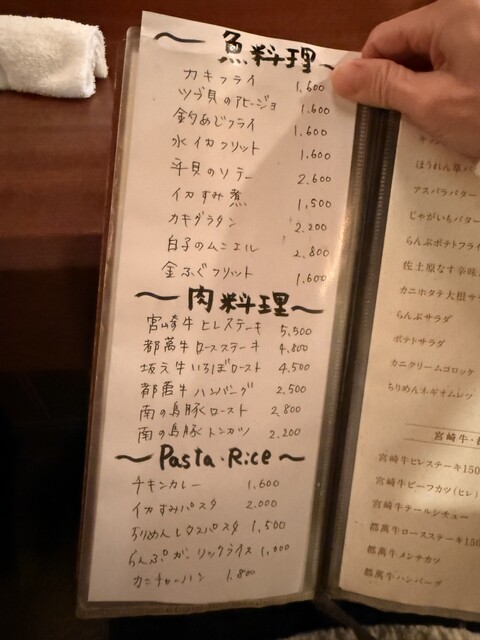 〜 魚料理 〜
カキフライ 1,600
ツブ貝のアヒージョ 1,600
釣あじフライ 1,600
水イカフリット 1,600
平貝のソテー 2,600
イカすみ煮 1,500
カキグラタン 2,200
白子のムニエル 2,800
金ふぐフリット 1,600
〜 肉料理 〜
宮崎牛ヒレステーキ 5,500
都萬牛ロースステーキ 4,800
坂元牛いちぼロースト 4,500
都萬牛ハンバーグ 2,500
南の島豚ロースト 2,800
南の島豚トンカツ 2,200
〜 Pasta・Rice 〜
チキンカレー 1,600
イカすみパスタ 2,000
ちりめんレタスパスタ 1,500
らんぷガーリックライス 1,000
カニチャーハン 1,800
ほうれん草バ
アスパラバター
じゃがいもバター
らんぷポテトフライ
佐土原なす辛味
カニホタテ大根サ
らんぷサラダ
ポテトサラダ
カニクリームコロッケ
ちりめんネギオムレツ
宮崎牛・
宮崎牛ヒレステーキ150
宮崎牛ビーフカツ(ヒレ)
宮崎牛テールシチュー
都萬牛ロースステーキ150
都萬牛メンチカツ
都萬牛ハンバーグ